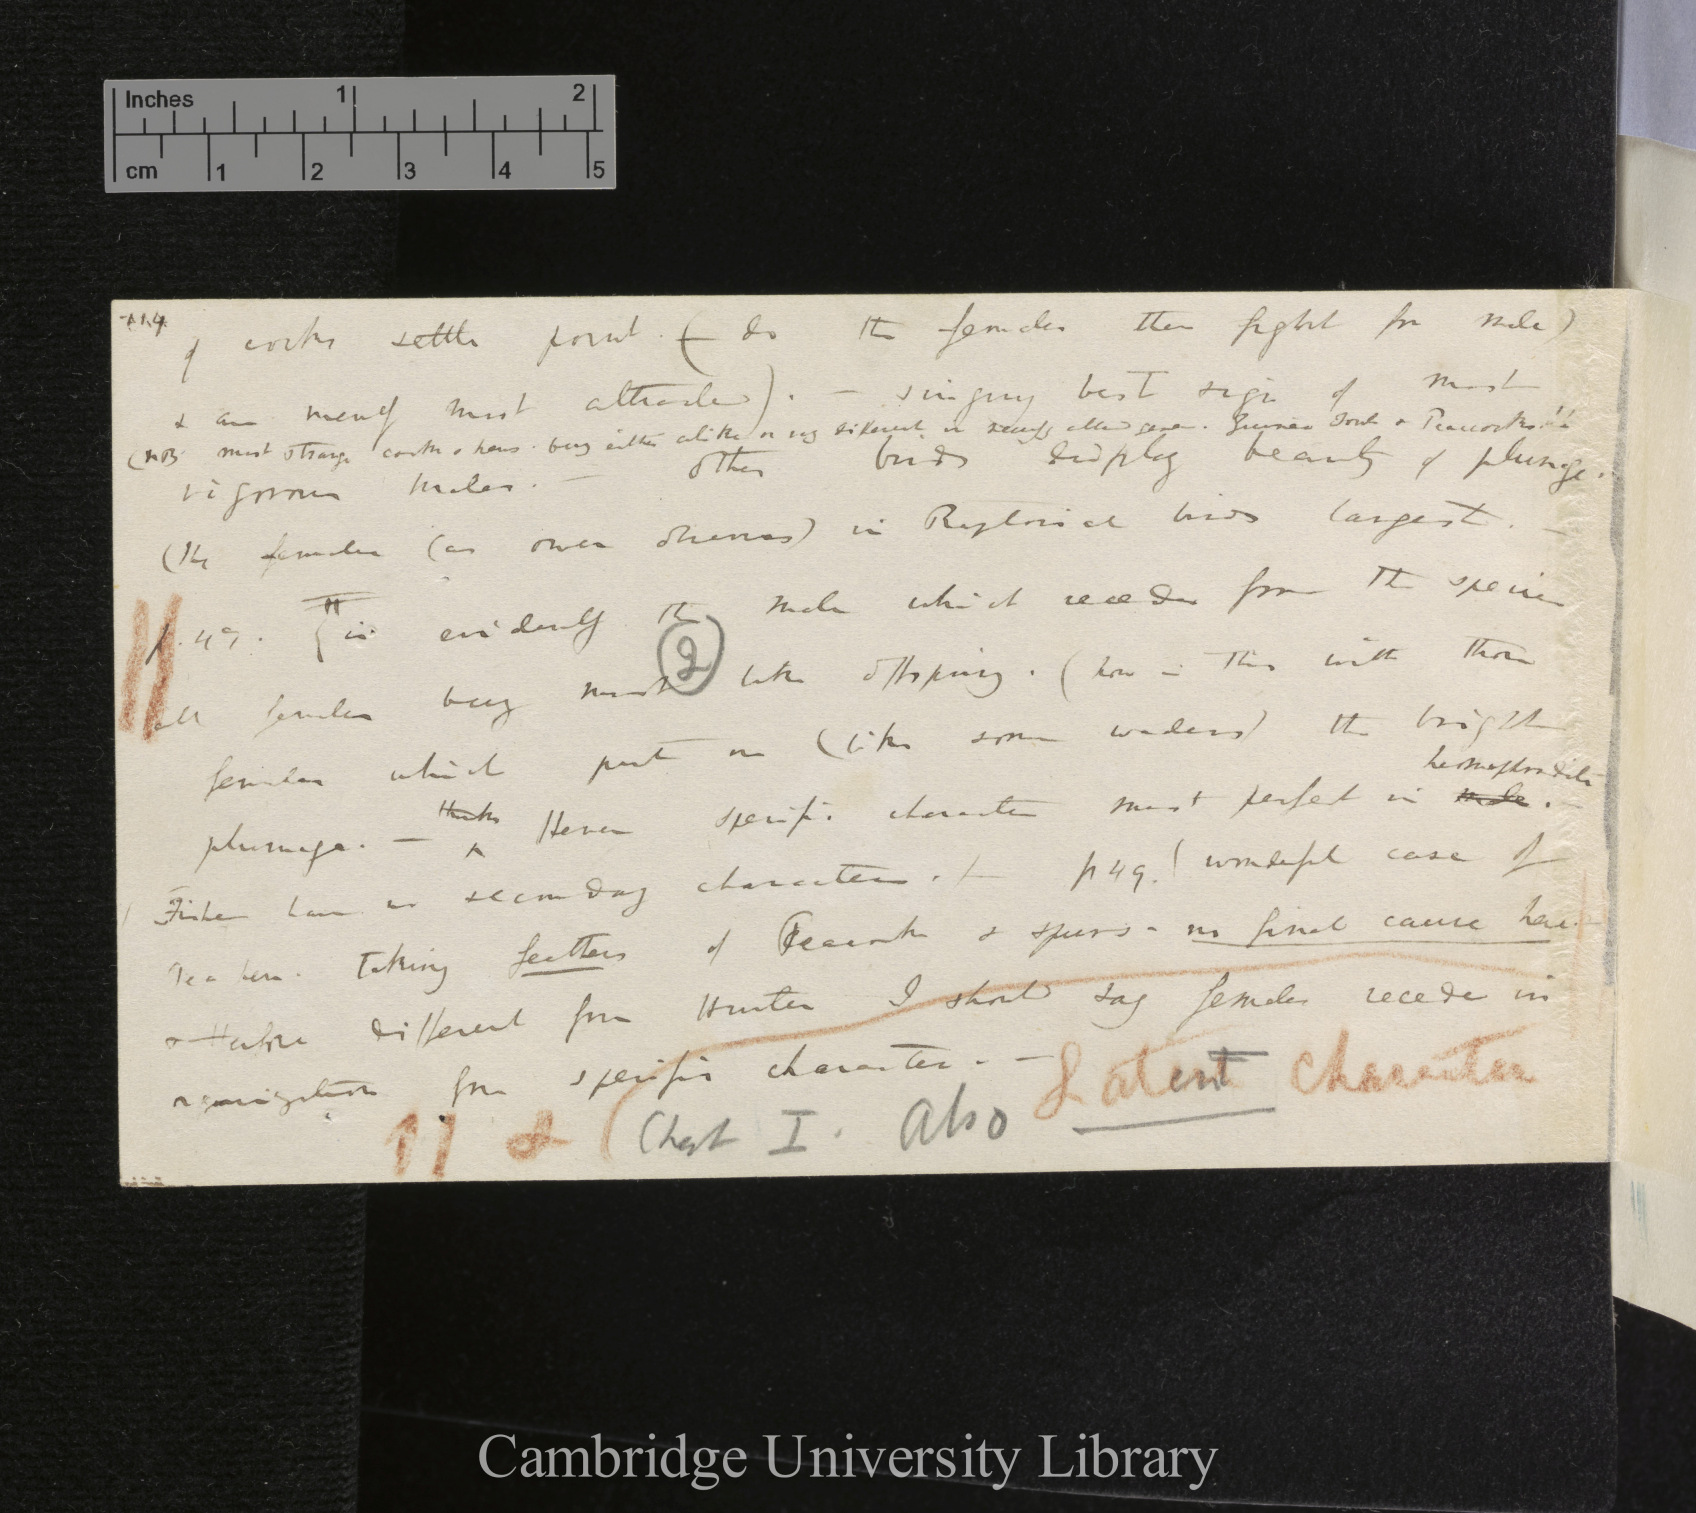 Inches 1 2
cm 1 2 3 4 5
114
of cocks settle point. (do the females then fight for male)
& are merely most attracted). — singing best sign of most
(NB most strange cocks & hens being either alike or very different in allied genera. Guinea Fowl & Peacocks!!
vigorous males. — other birds display beauty of plumage.
(The females (as owen observes) in Raptorial birds largest. —
p. 49. It is evidently the male which recedes from the species
all females being most like offspring. (how is this with those
②
females which put on (like some waders) the bright
hermaphrodite
plumage. — thinks Hence specific character most perfect in male. —
Fishes have no secondary characters. — p 49! wonderful case of
Pea hen. taking feathers of Peacock & spurs. no final cause here
& therefore different from Hunter I should say females recede in
organization from specific character. —
11 & Chapt I. Also Latent character
Cambridge University Library